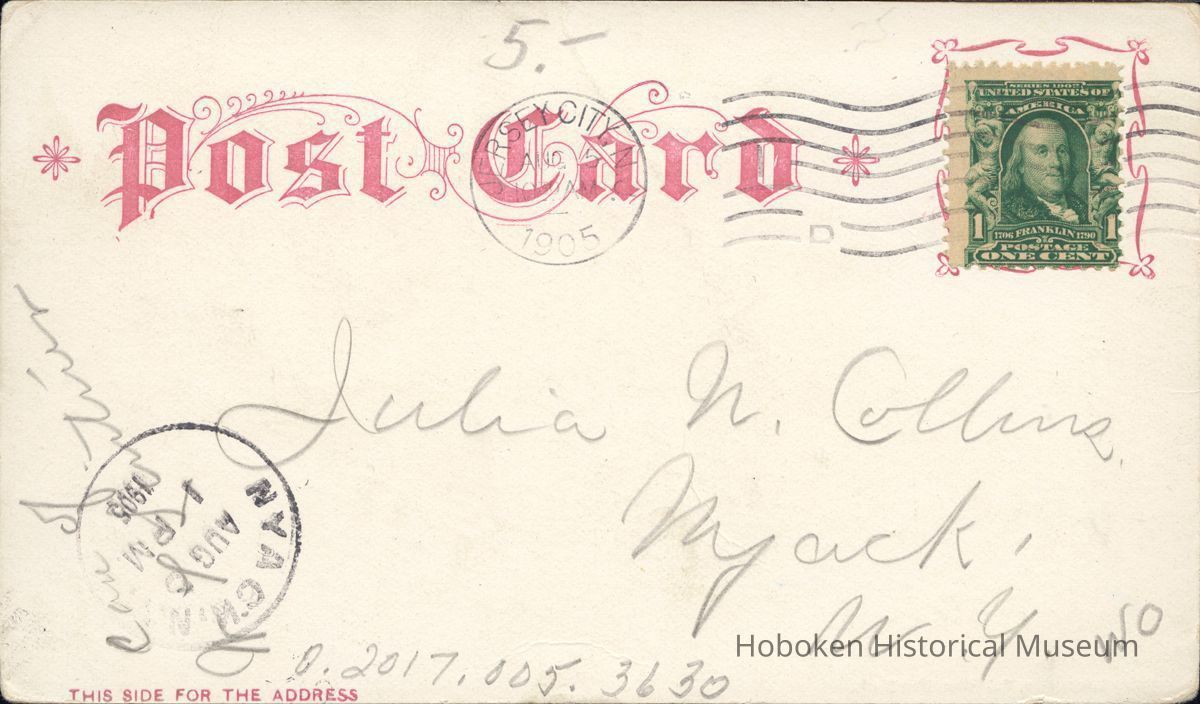 5.-
Post Card
JERSEY CITY, N.
AUG
1905
SERIES 1902
UNITED STATES OF
AMERICA
1706 FRANKLIN 1790
1 1
POSTAGE
ONE CENT
Julia N. Collins,
Nyack,
N. Y.
NYACK N.
AUG
1 PM
1905
Care
0.2017.005.3630
Hoboken Historical Museum
THIS SIDE FOR THE ADDRESS